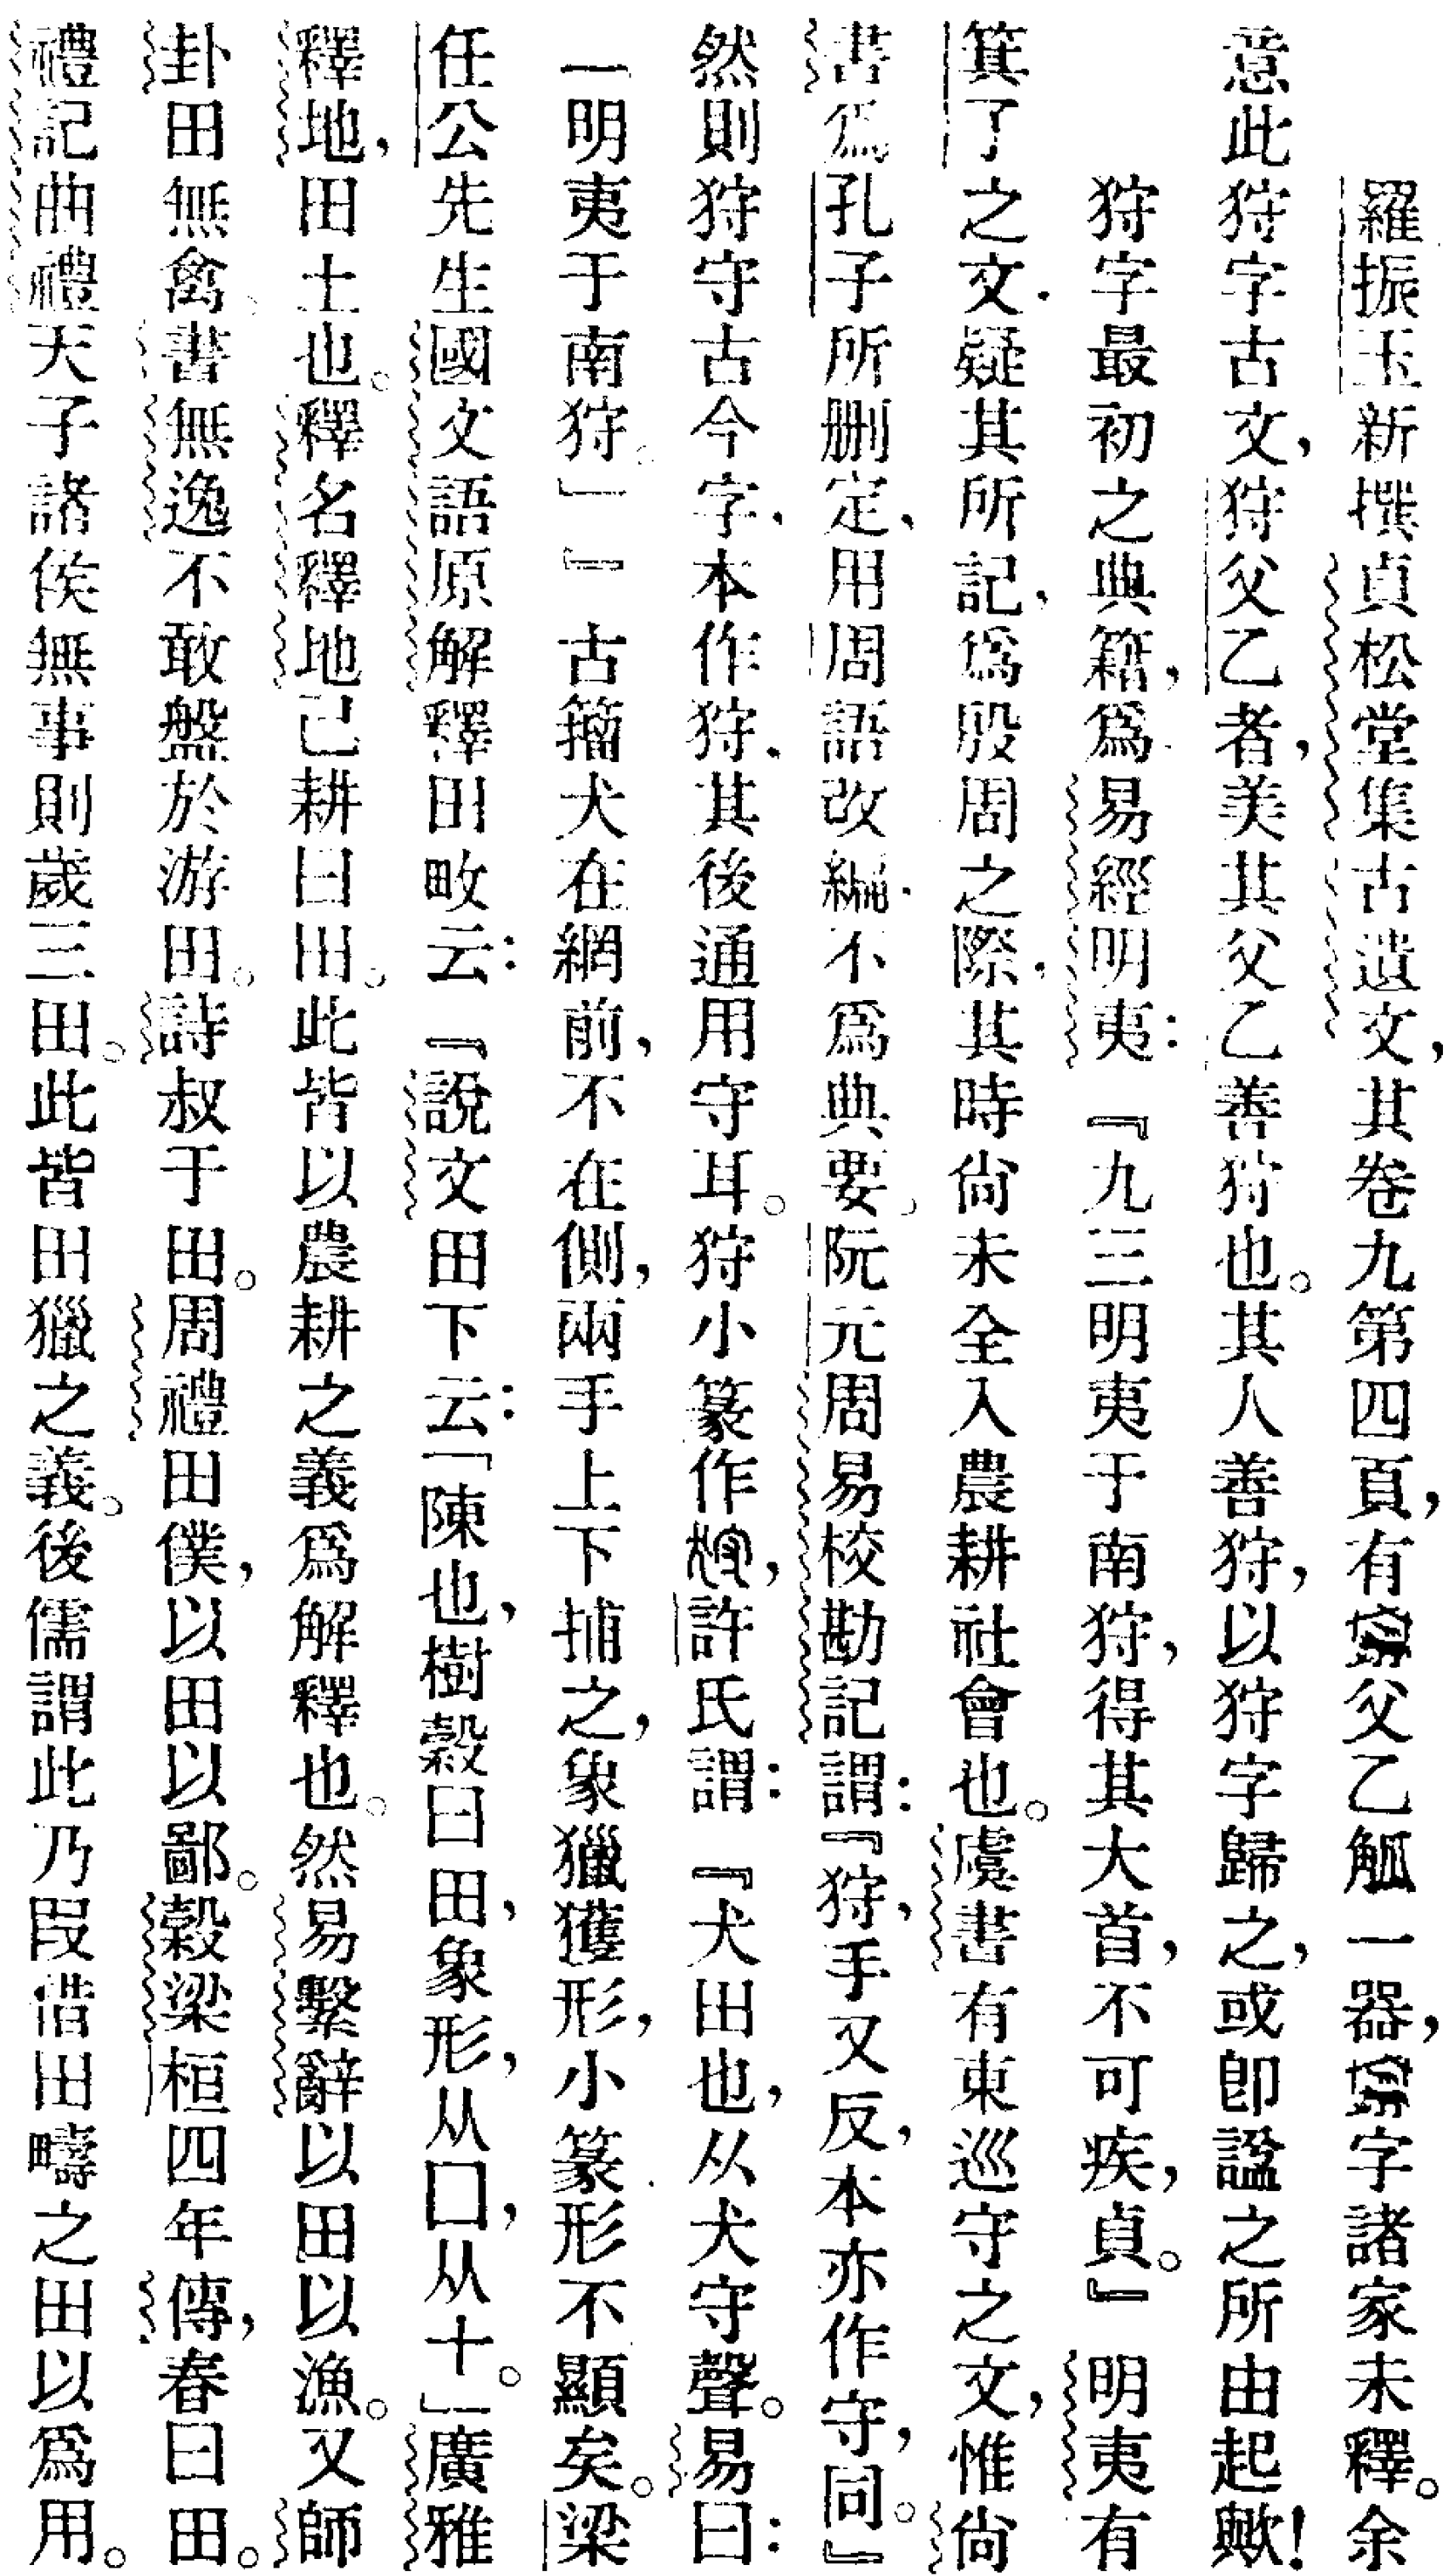 羅振玉新撰貞松堂集古遺文，其卷九第四頁，有父乙觚一器，字諸家未釋。余
意此狩字古文，狩父乙者，美其父乙善狩也。其人善狩，以狩字歸之，或卽諡之所由起歟！
狩字最初之典籍，爲易經明夷：『九三明夷于南狩，得其大首，不可疾，貞。』明夷有
箕了之文，疑其所記，爲殷周之際，其時尙未全入農耕社會也。虞書有東巡守之文，惟尙
書爲孔子所删定，用周語改編，不爲典要。阮元周易校勘記謂：『狩，手又反，本亦作守，同。』
然則狩守古今字，本作狩，其後通用守耳。狩小篆作，許氏謂：『犬田也，从犬守聲。易曰：
「明夷于南狩。」』古籀犬在網前，不在側，兩手上下捕之，象獵獲形，小篆形不顯矣。梁
任公先生國文語原解釋田畋云：『說文田下云：「陳也，樹穀曰田，象形，从囗，从十。」廣雅
釋地，田土也。釋名釋地已耕曰田。此皆以農耕之義爲解釋也。然易繫辭以田以漁。又師
卦田無禽。書無逸不敢盤於游田。詩叔于田。周禮田僕，以田以鄙。穀梁桓四年傳，春曰田。
禮記曲禮天子諸侯無事則歲三田。此皆田獵之義。後儒謂此乃叚借田疇之田以爲用。